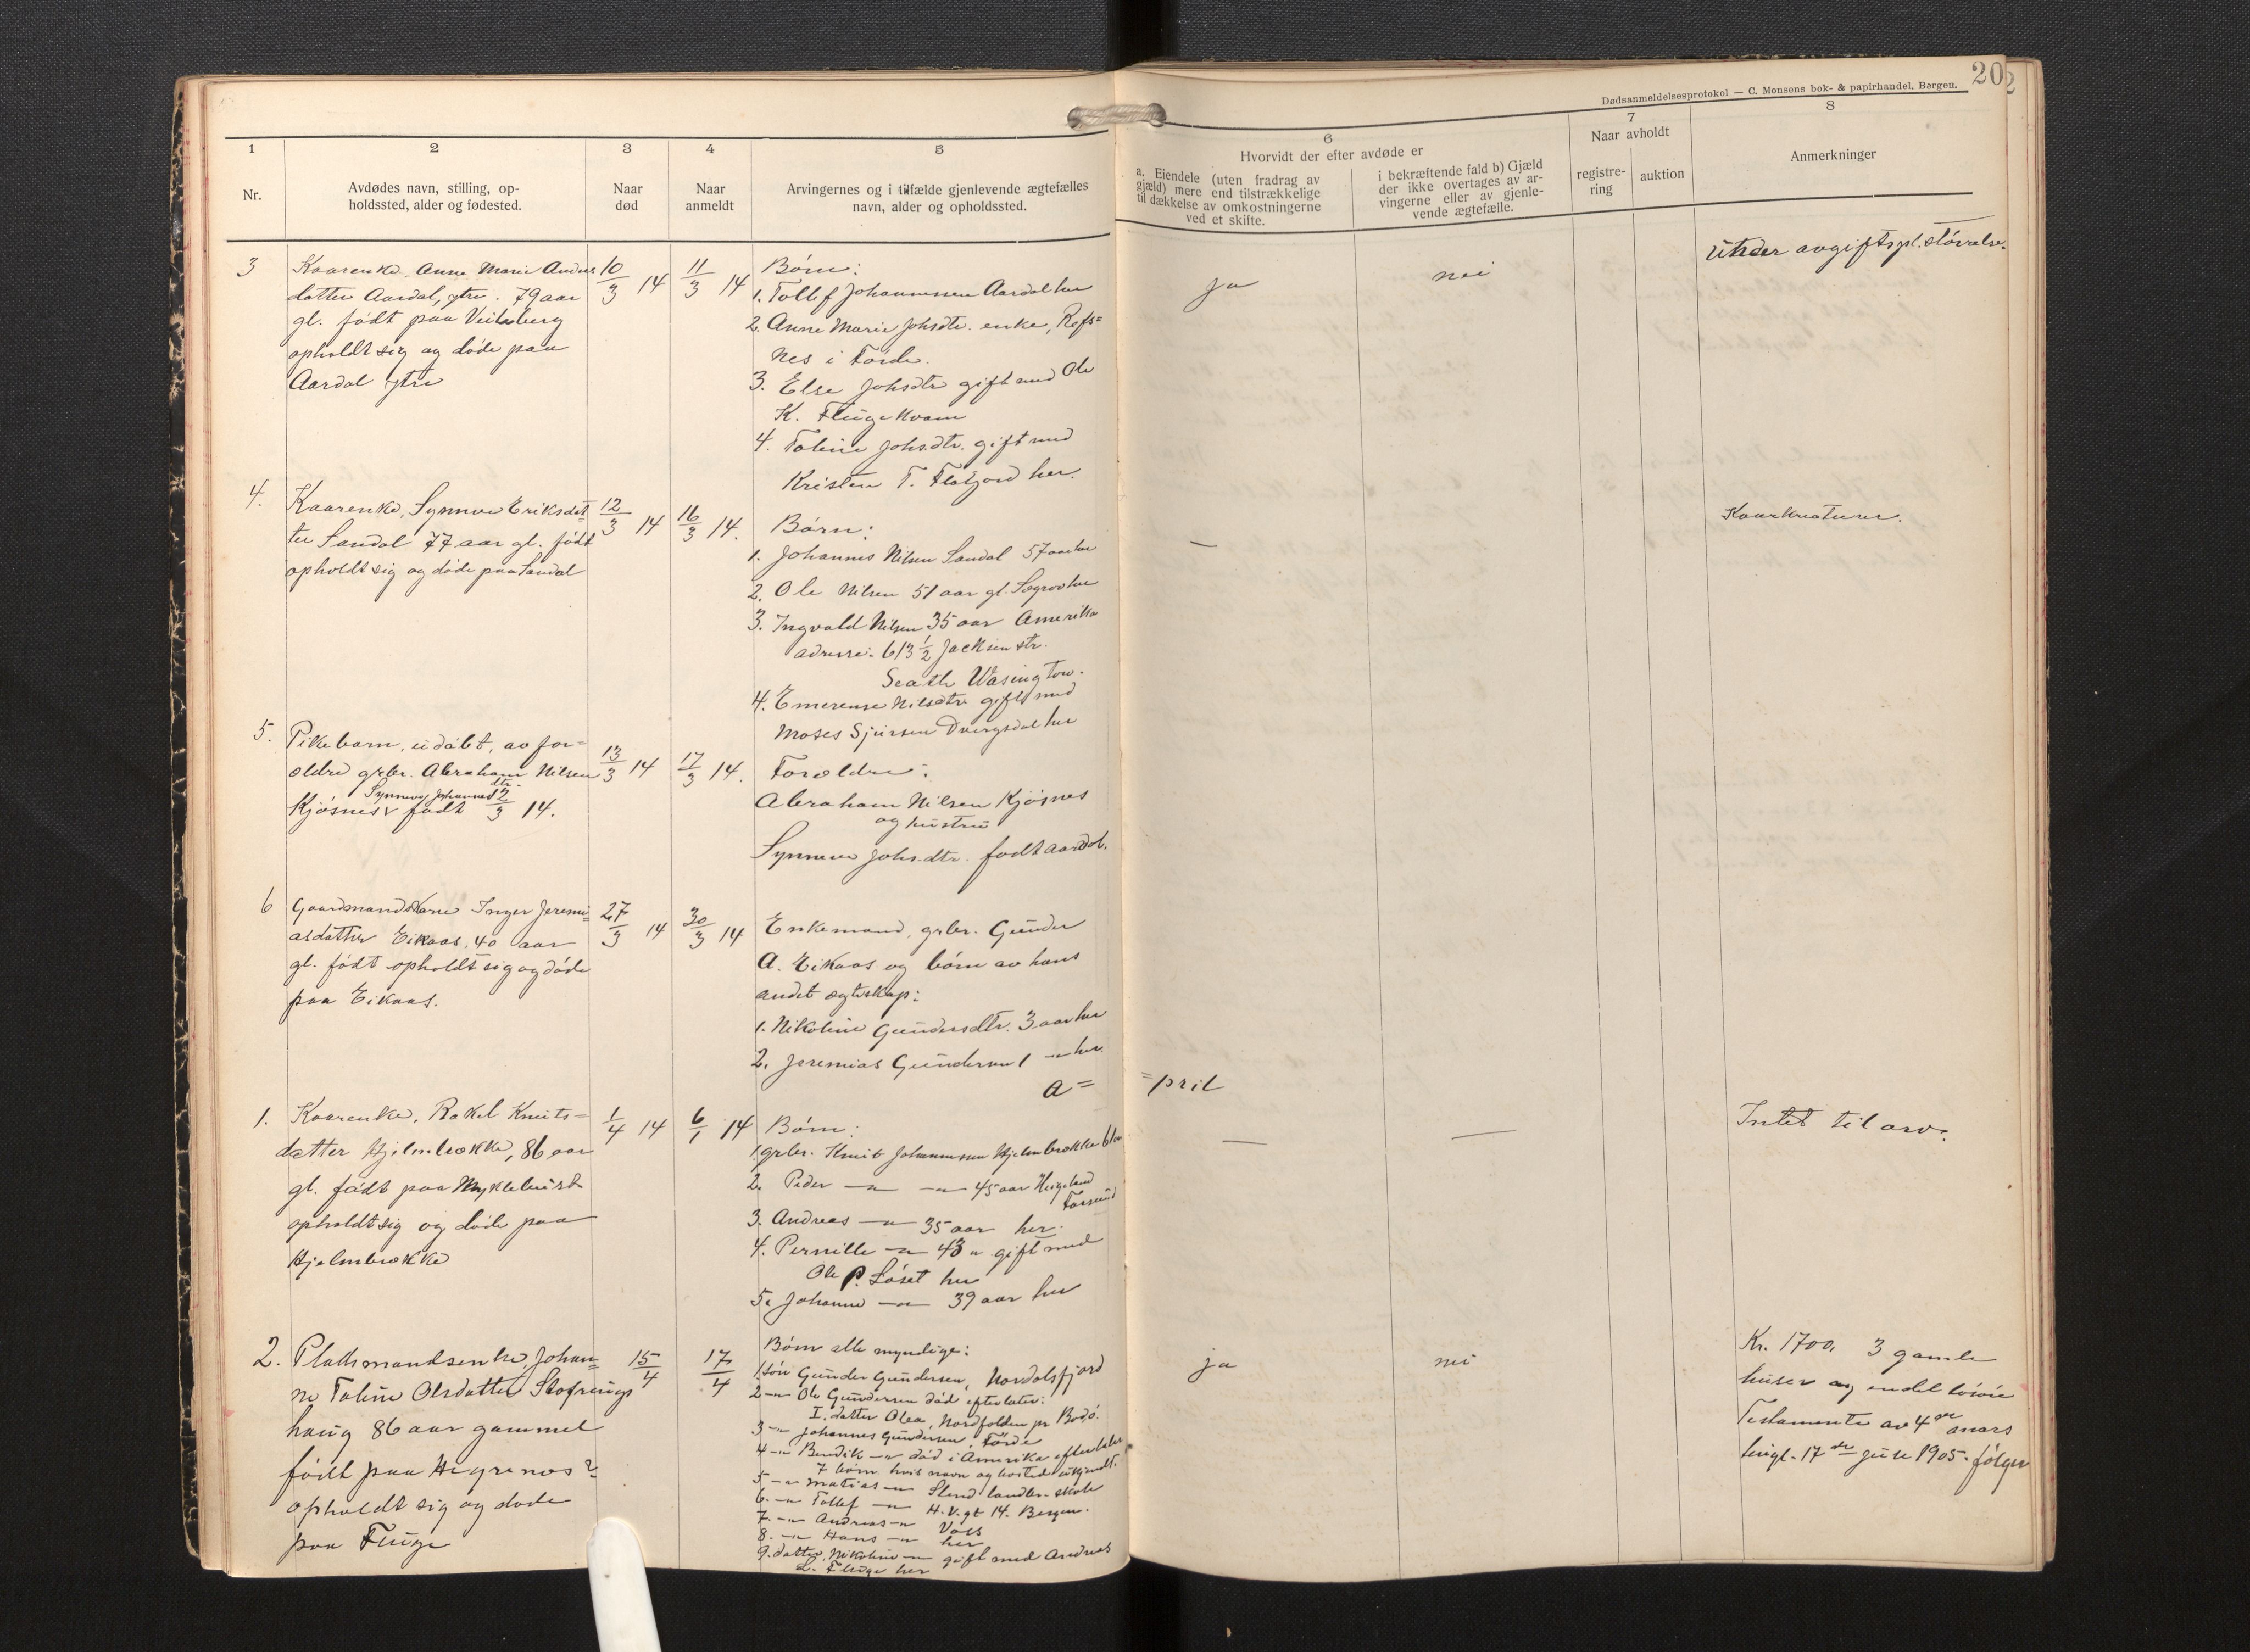 20
2
Dødsanmeldelsesprotokol — C. Monsens bok- & papirhandel, Bergen.
1
2
3
4
5
6
7
8
Nr.
Avdødes navn, stilling, op-
holdssted, alder og fødested.
Naar
død
Naar
anmeldt
Arvingernes og i tilfælde gjenlevende ægtefælles
navn, alder og opholdssted.
Hvorvidt der efter avdøde er
a. Eiendele (uten fradrag av
gjæld) mere end tilstrækkelige
til dækkelse av omkostningerne
ved et skifte.
i bekræftende fald b) Gjæld
der ikke overtages av ar-
vingerne eller av gjenle-
vende ægtefælle.
Naar avholdt
registre-
ring
auktion
Anmerkninger
3
Kaarenke. Anne Marie Anders
datter Aardal, ytre. 79 aar
gl. født paa
opholdt sig og døde paa
Aardal ytre
10/3 14
11/3 14
Børn:
1. Tollef Johannessen Aardal her
2. Anne Marie Johsdtr. enke, Refs=
nes i Førde.
3. Else Johsdtr gift med Ole
K. Fluge Kvam
4. Taline Johs.dtr. gift med
Kristen T. her.
ja
nei
Under avgiftspl. størrelse.
4.
Kaarenke, Synneve Eriksdat=
ter Sandal 77 aar gl. født
opholdt sig og døde paa Sandal
12/3 14
16/3 14.
Børn:
1. Johannes Nilsen Sandal 57 aar her
2. Ole Nilsen 51 aar gl. Søgrov her
3. Ingvald Nilsen 35 aar Amerika
adresse: 613 1/2 Jacksen str.
Seatle Wasington.
4. Emerense Nilsdtr gift med
Moses Sjursen Dvergsdal her
—
Kaarkreaturer.
5.
Pikebarn, udøbt, av for=
ældre grbr. Abraham Nilsen
Synneve Johannesdtr.
Kjøsnes v født 2/3 14.
13/3 14
17/3 14.
Forældre:
Abraham Nilsen Kjøsnes
og hustru
Synneve Johs.dtr. født Aardal.
6
Gaardmandskone Inger Jeremi=
asdatter Eikaas, 40 aar
gl. født opholdt sig og døde
paa Eikaas.
27/3 14
30/3 14
Enkemand, grbr. Gunder
A. Eikaas og børn av hans
andet ægteskap:
1. Nikoline Gundersdtr. 3 aar her
2. Jeremias Gundersen 1 —"— her
A=
=pril
1.
Kaarenke, Rakel Knuts=
datter Hjelmbrække, 86 aar
gl. født paa Myklebust
opholdt sig og døde paa
Hjelmbrække
1/4 14
6/1 14
Børn:
1. grbr. Knut Johannessen Hjelmbrække 61 aar
2. Peder —"— —"— 45 aar
3. Andreas —"— 35 aar her.
4. Pernille —"— 43 " gift med
Ole P. Løset her
5. Johanne —"— 39 aar her
—
—
Intet til arv.
2.
Pladsmandsenke, Johan=
ne Taline Olsdatter Slofrings
haug 86 aar gammel
født paa Hegrenes?
opholdt sig og døde
paa Fluge
15/4
17/4
Børn alle myndige:
1. søn Gunder Gundersen, Nordalsfjord
2 —"— Ole Gundersen død efterlater:
I. datter Olea, Nordfolden pr Bodø.
3 —"— Johannes Gundersen, Førde
4 —"— Bendik —"— død i Amerika efterlater
7 børn hvis navn og bosted ukjendt.
5 —"— Matias —"— Stend landbr. skole
6. —"— Tollef —"— H.V.gt 14. Bergen.
7. —"— Andreas —"— Voss
8. —"— Hans —"— her
9. datter Nikoline —"— gift med Andreas
L. Fluge her
ja
nei
Kr. 1700, 3 gamle
huser og endel løsøre
Testamente av 4de mars
tingl. 17de juli 1905. følger